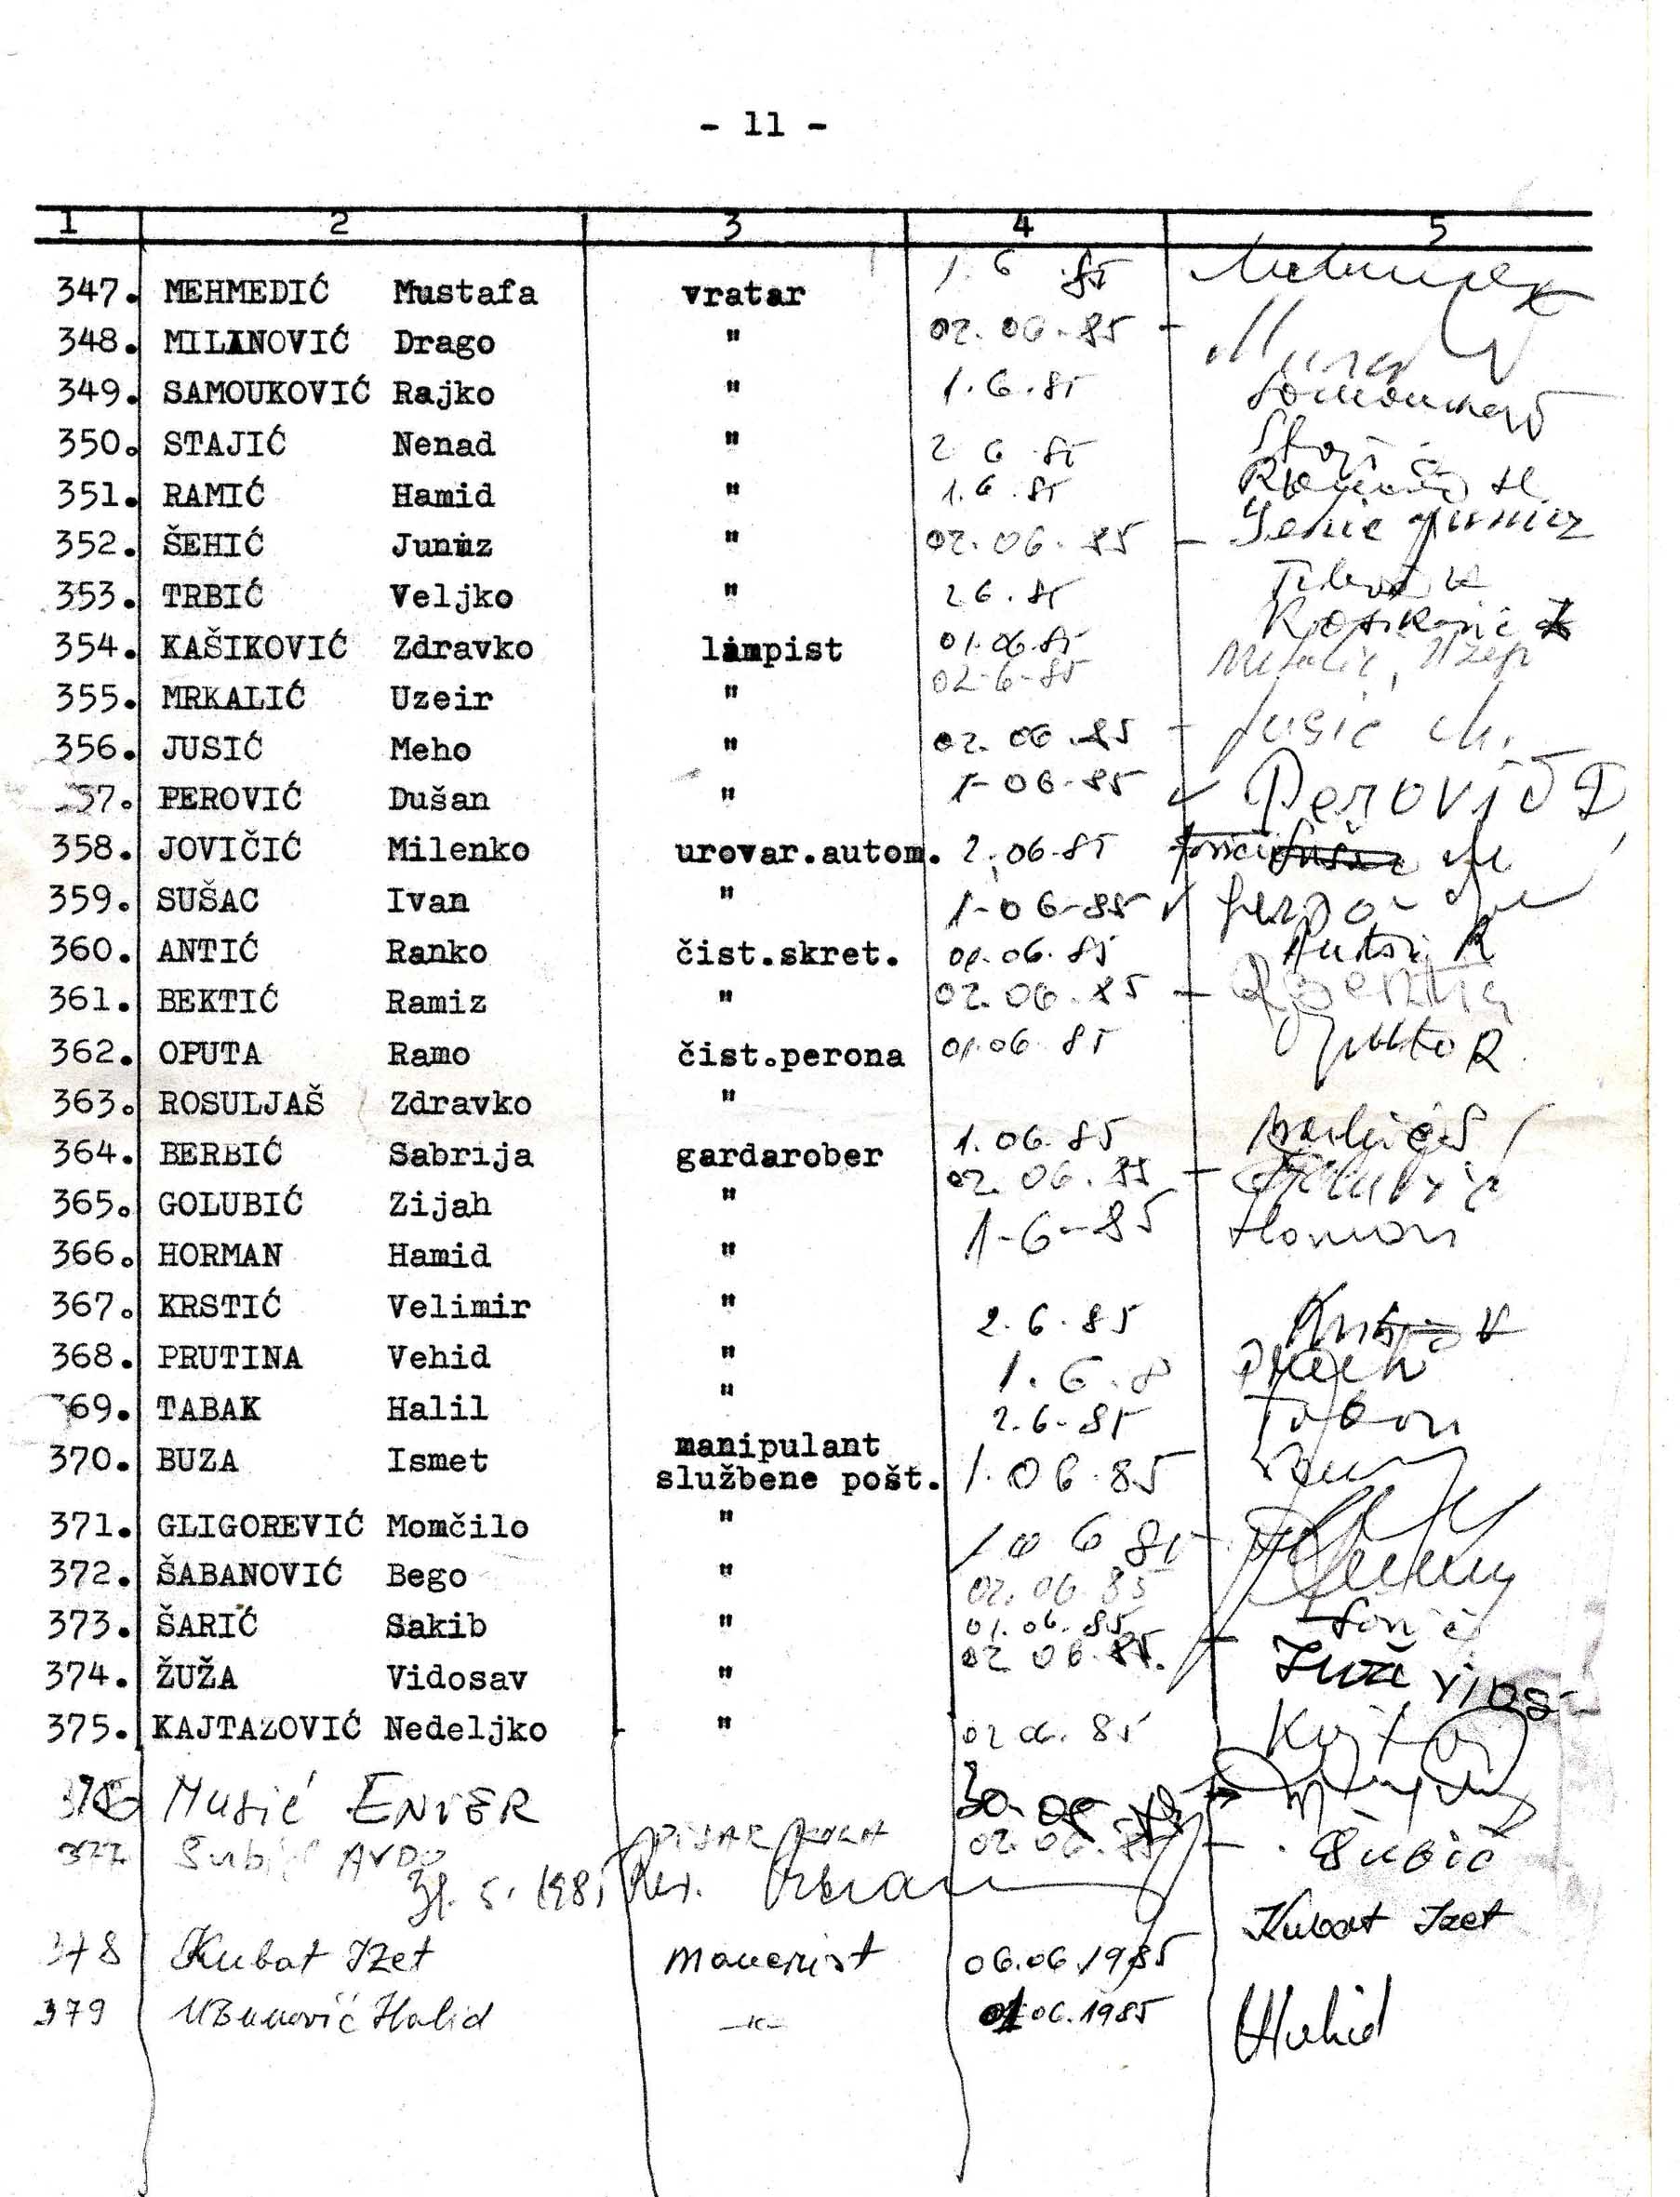 - 11 -
1 2 3 4 5
347. MEHMEDIĆ Mustafa vratar 1.6.85
348. MILANOVIĆ Drago " 02.06.85 -
349. SAMOUKOVIĆ Rajko " 1.6.85
350. STAJIĆ Nenad " 2 6 85
351. RAMIĆ Hamid " 1.6.85
352. ŠEHIĆ Juniz " 02.06.85 -
353. TRBIĆ Veljko " 2 6.85
354. KAŠIKOVIĆ Zdravko limpist 01.06.85
355. MRKALIĆ Uzeir " 02-6-85
356. JUSIĆ Meho " 02.06.85 - Jusić M.
57. PEROVIĆ Dušan " 1-06-85 Perović D
358. JOVIČIĆ Milenko urovar.autom. 2.06.85
359. SUŠAC Ivan " 1-06-85
360. ANTIĆ Ranko čist.skret. 01.06.85 Antić R
361. BEKTIĆ Ramiz " 02.06.85 -
362. OPUTA Ramo čist.perona 01.06.85 Oputa R.
363. ROSULJAŠ Zdravko "
364. BERBIĆ Sabrija gardarober 1.06.85
365. GOLUBIĆ Zijah " 02.06.85 -
366. HORMAN Hamid " 1-6-85 Horman
367. KRSTIĆ Velimir " 2.6.85 Krstić V
368. PRUTINA Vehid " 1.6.8
369. TABAK Halil " 2.6-85
manipulant
370. BUZA Ismet službene pošt. 1.06.85
371. GLIGOREVIĆ Momčilo "
372. ŠABANOVIĆ Bego " 02.06.85
373. ŠARIĆ Sakib " 01.06.85
374. ŽUŽA Vidosav " 02 06.85. -
375. KAJTAZOVIĆ Nedeljko " 02 06.85
376 Musić ENVER
377 Šubić AVDO PISAR KOLA 02.06.85 - Šubić
31.5.1985
378 Kubat Izet manevrist 06.06.1985 Kubat Izet
379 Halid -"- 01 06.1985 Halid